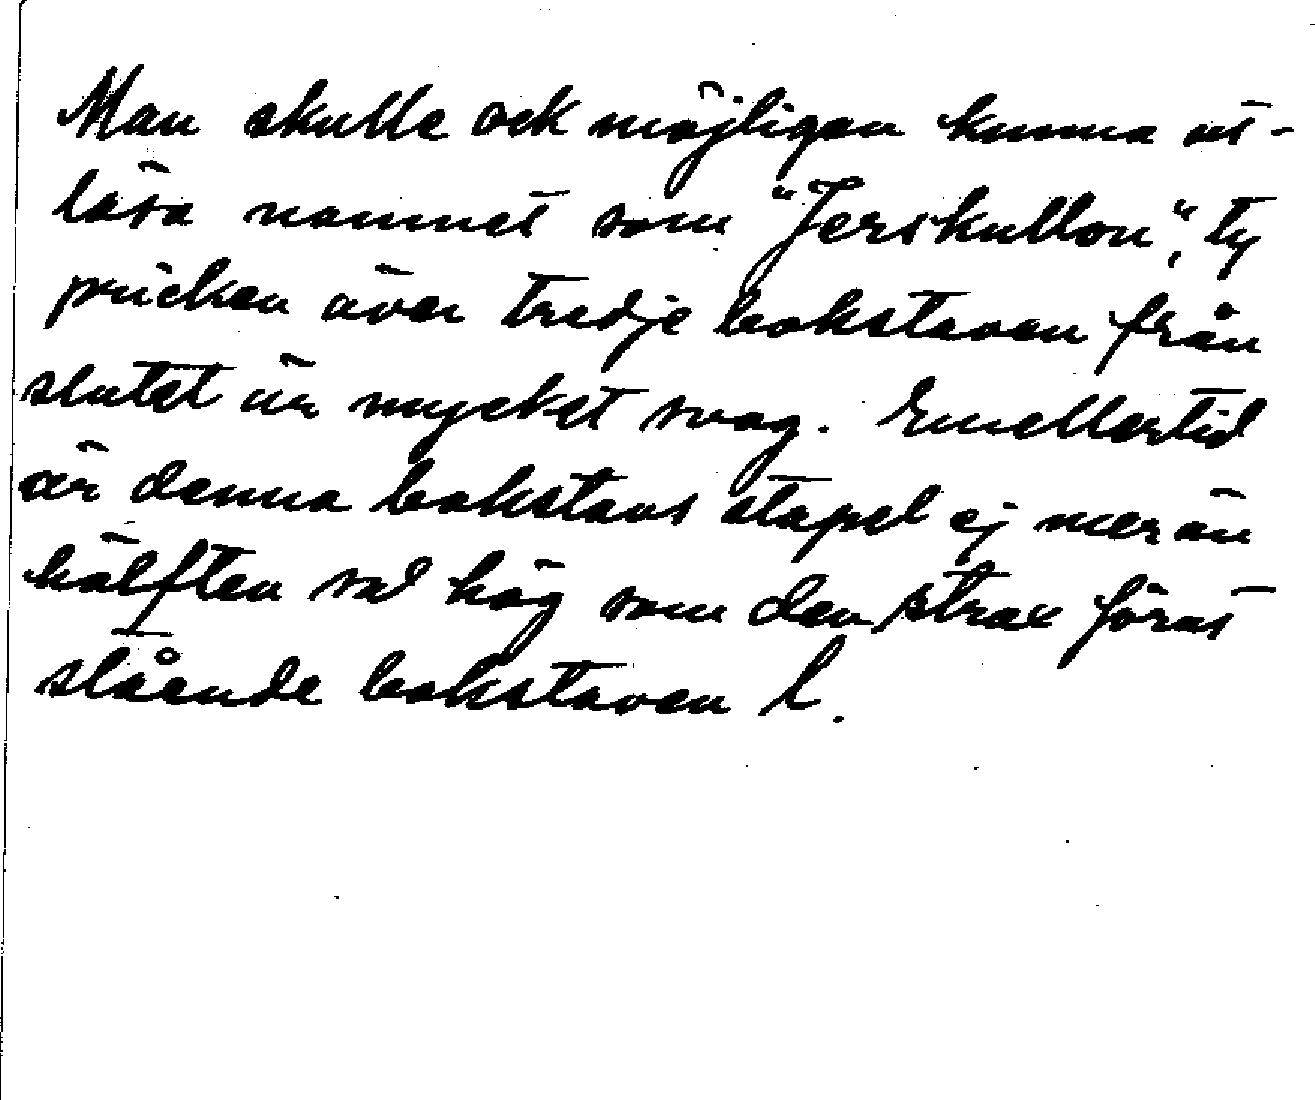 Man skulle ock möjligen kunna ut-
läsa namnet som "Jerskullon", ty
pricken över tredje bokstaven från
slutet är mycket svag. Emellertid
är denna bokstavs stapel ej mer än
hälften så hög som den strax förut
stående bokstaven l.